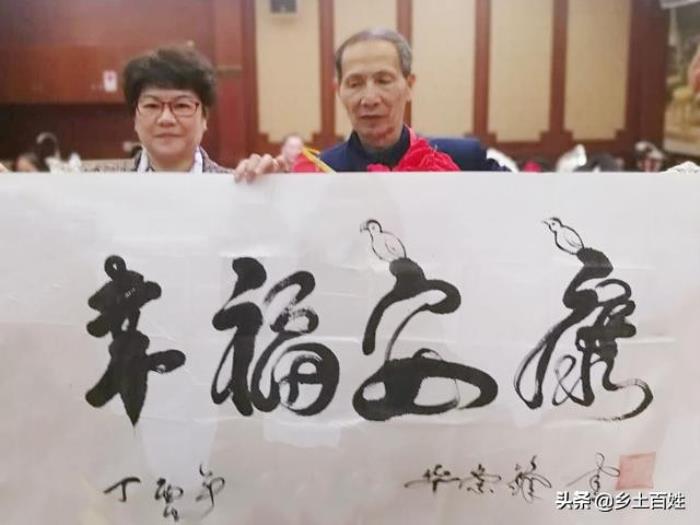 幸福安康
丁酉年 华崇锋 书
头条 @乡土百姓